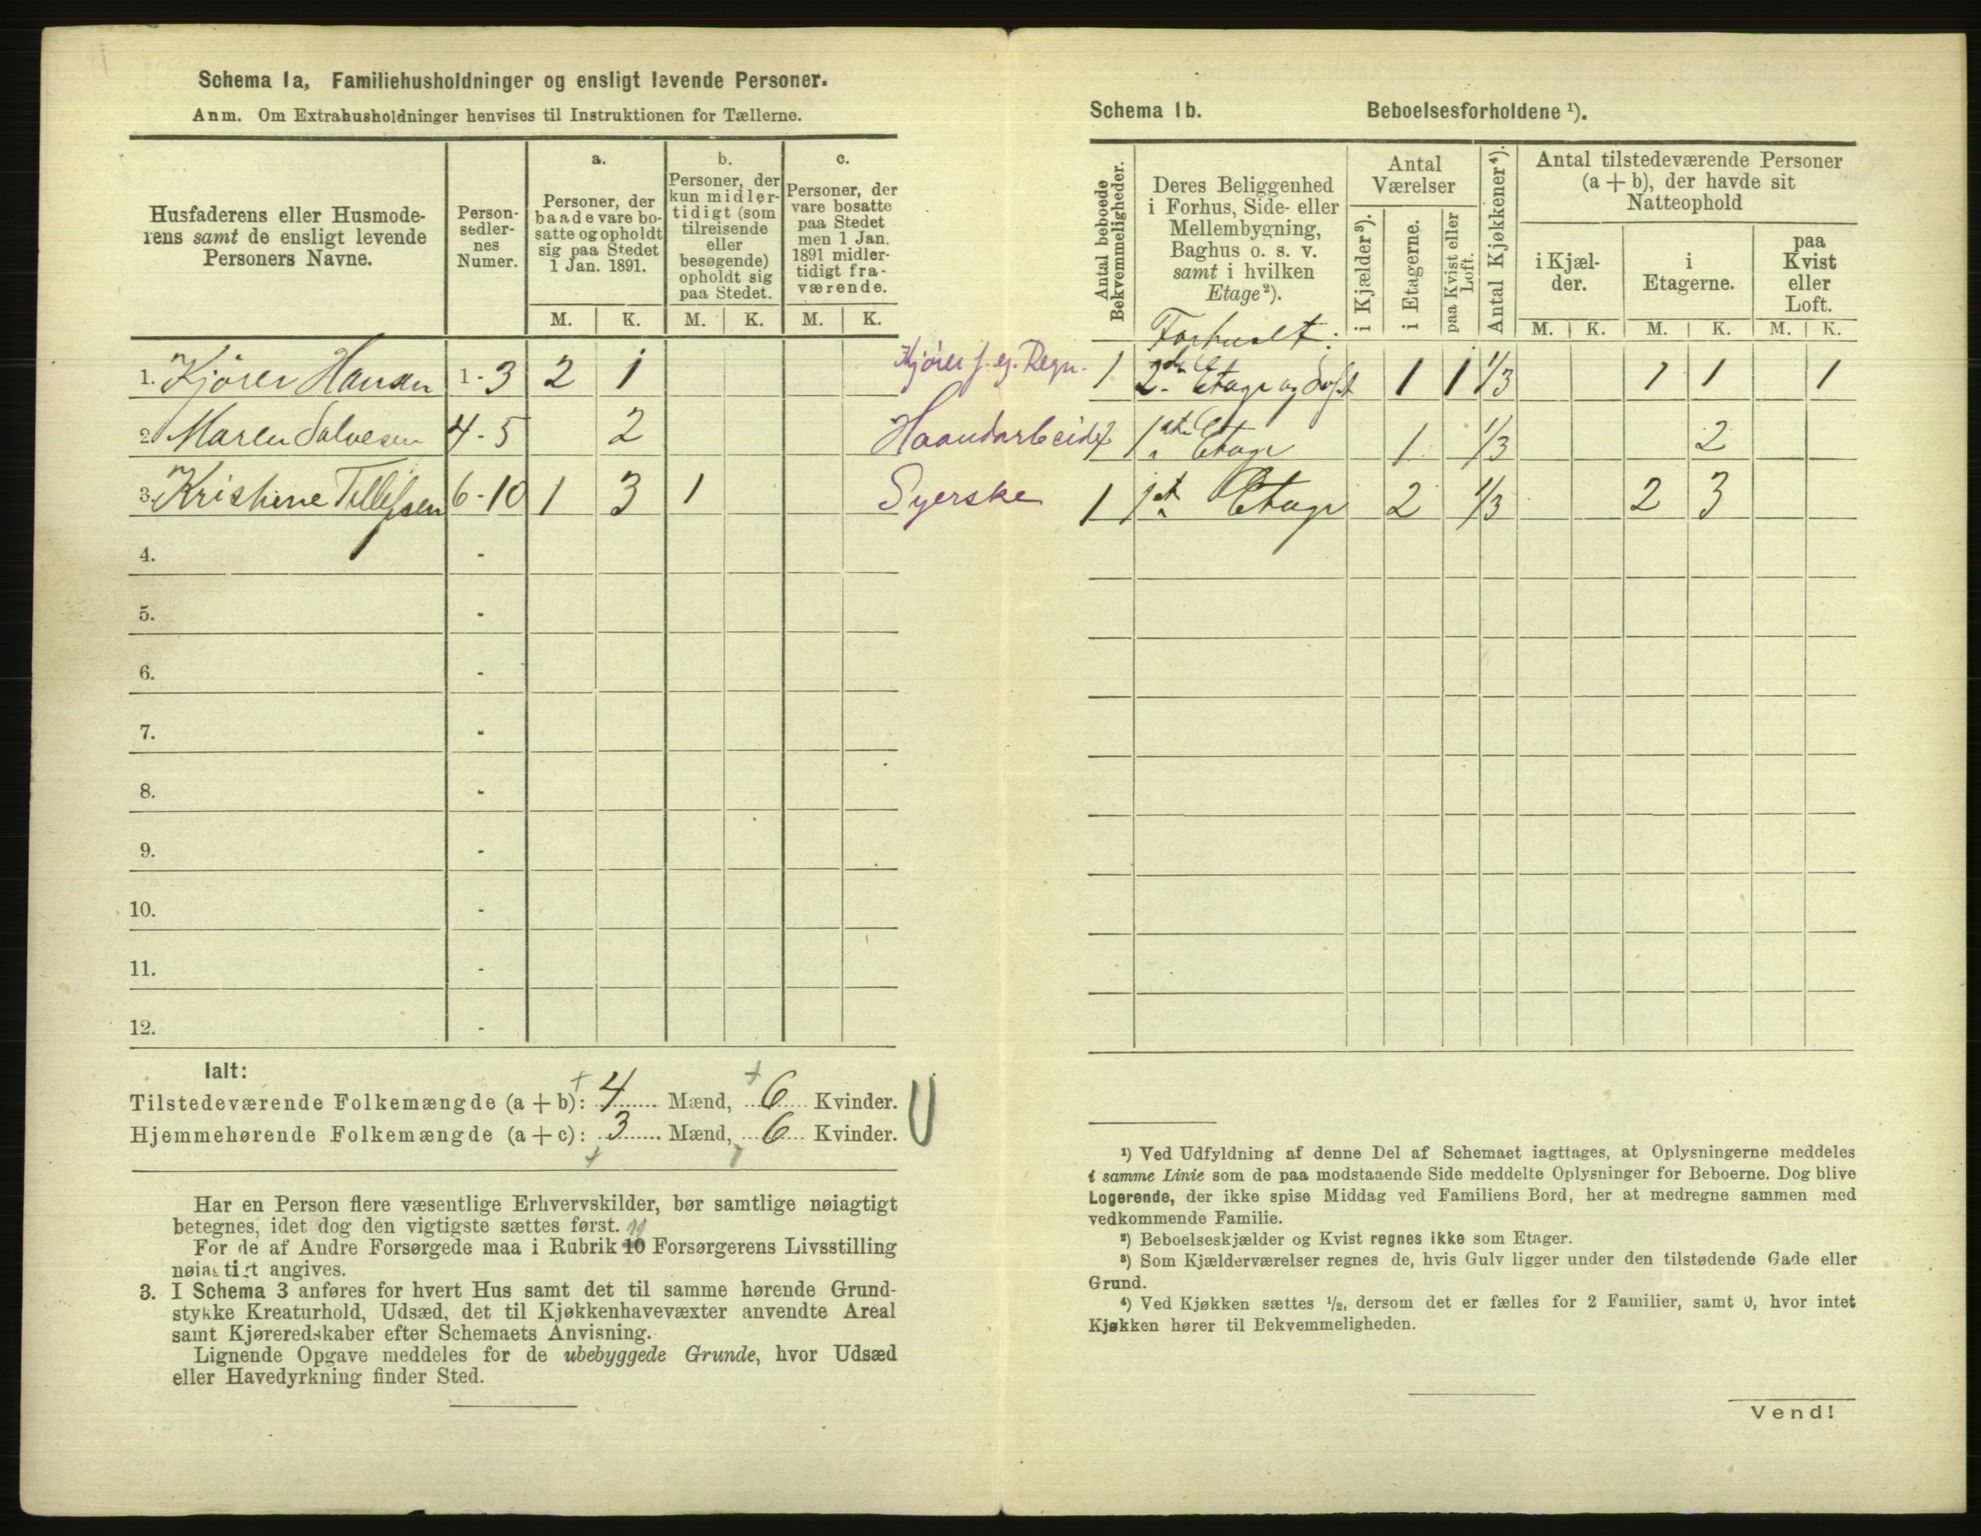 Schema 1a, Familiehusholdninger og ensligt levende Personer.
Anm. Om Extrahusholdninger henvises til Instruktionen for Tællerne.
Husfaderens eller Husmode-
rens samt de ensligt levende
Personers Navne.
Person-
sedler-
nes
Numer.
a.
Personer, der
baade vare bo-
satte og opholdt
sig paa Stedet
1 Jan. 1891.
b.
Personer, der
kun midler-
tidigt (som
tilreisende
eller
besøgende)
opholdt sig
paa Stedet.
c.
Personer, der
vare bosatte
paa Stedet
men 1 Jan.
1891 midler-
tidigt fra-
værende.
M. K. M. K. M. K.
1. Kjører Hansen 1 - 3 2 1 Kjører f. eg. Regn.
2. Maren Salvesen 4 - 5 2 Haandarbeide
3. Kristine Tellefsen 6 - 10 1 3 1 Syerske
4. -
5. -
6. -
7. -
8. -
9. -
10. -
11. -
12. -
Ialt:
Tilstedeværende Folkemængde (a + b): 4 Mænd, 6 Kvinder.
Hjemmehørende Folkemængde (a + c): 3 Mænd, 6 Kvinder.
Har en Person flere væsentlige Erhvervskilder, bør samtlige nøiagtigt
betegnes, idet dog den vigtigste sættes først.
For de af Andre Forsørgede maa i Rubrik 10 Forsørgerens Livsstilling
nøiagtigt angives.
3. I Schema 3 anføres for hvert Hus samt det til samme hørende Grund-
stykke Kreaturhold, Udsæd, det til Kjøkkenhavevæxter anvendte Areal
samt Kjøreredskaber efter Schemaets Anvisning.
Lignende Opgave meddeles for de ubebyggede Grunde, hvor Udsæd
eller Havedyrkning finder Sted.
Schema 1b. Beboelsesforholdene ¹).
Antal beboede
Bekvemmeligheder.
Deres Beliggenhed
i Forhus, Side- eller
Mellembygning,
Baghus o. s. v.
samt i hvilken
Etage²).
Antal
Værelser
i Kjælder³).
i Etagerne.
paa Kvist eller
Loft.
Antal Kjøkkener⁴).
Antal tilstedeværende Personer
(a + b), der havde sit
Natteophold
i Kjæl-
der.
i
Etagerne.
paa
Kvist
eller
Loft.
M. K. M. K. M. K.
1 2den Etage og Loft 1 1 1/3 1 1 1
1 1ste Etage 1 1/3 2
1 1st Etage 2 1/3 2 3
¹) Ved Udfyldning af denne Del af Schemaet iagttages, at Oplysningerne meddeles
i samme Linie som de paa modstaaende Side meddelte Oplysninger for Beboerne. Dog blive
Logerende, der ikke spise Middag ved Familiens Bord, her at medregne sammen med
vedkommende Familie.
²) Beboelseskjælder og Kvist regnes ikke som Etager.
³) Som Kjælderværelser regnes de, hvis Gulv ligger under den tilstødende Gade eller
Grund.
⁴) Ved Kjøkken sættes ½, dersom det er fælles for 2 Familier, samt 0, hvor intet
Kjøkken hører til Bekvemmeligheden.
Vend!